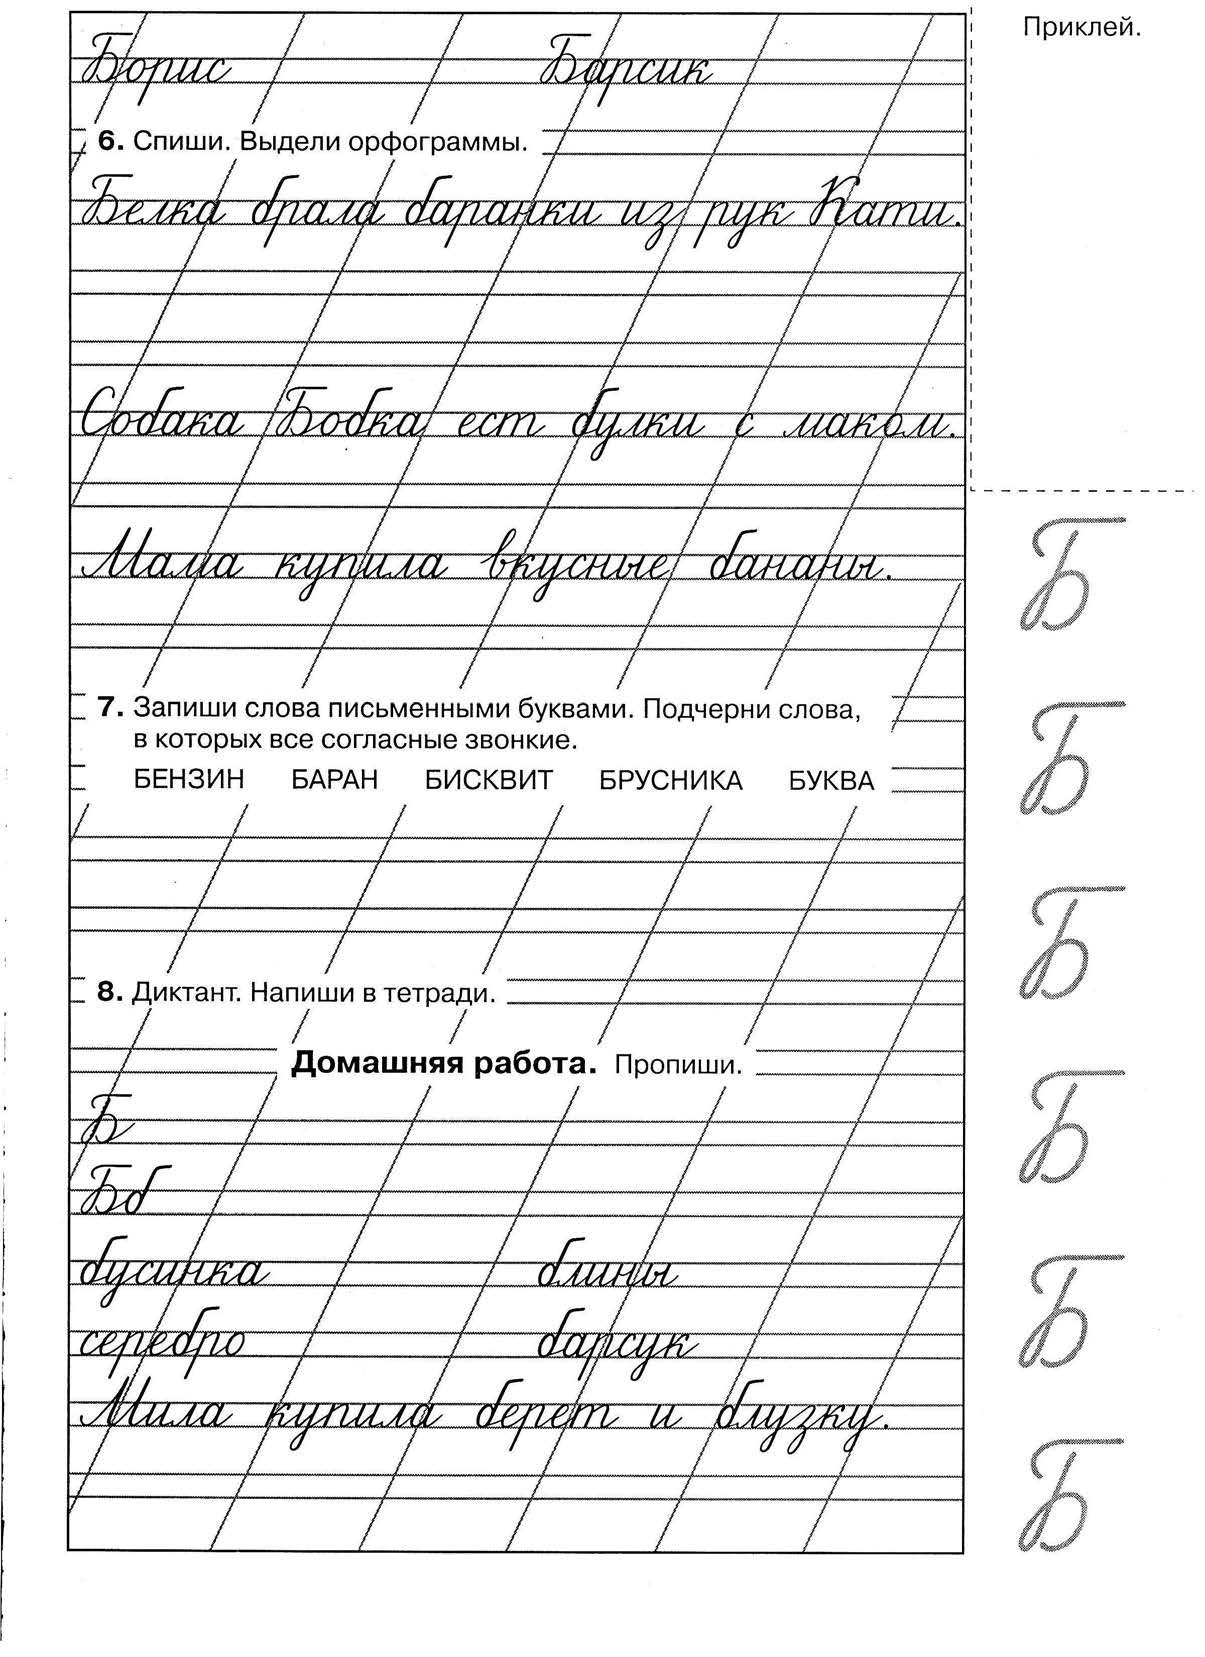 Приклей.
Борис Барсик
6. Спиши. Выдели орфограммы.
Белка брала баранки из рук Кати.
Собака Бобка ест булки с маком.
Мама купила вкусные бананы.
Б
7. Запиши слова письменными буквами. Подчеркни слова,
в которых все согласные звонкие.
Б
БЕНЗИН БАРАН БИСКВИТ БРУСНИКА БУКВА
Б
8. Диктант. Напиши в тетради.
Домашняя работа. Пропиши.
Б
Б
Бб
бусинка блины
Б
серебро барсук
Мила купила берет и блузку.
Б